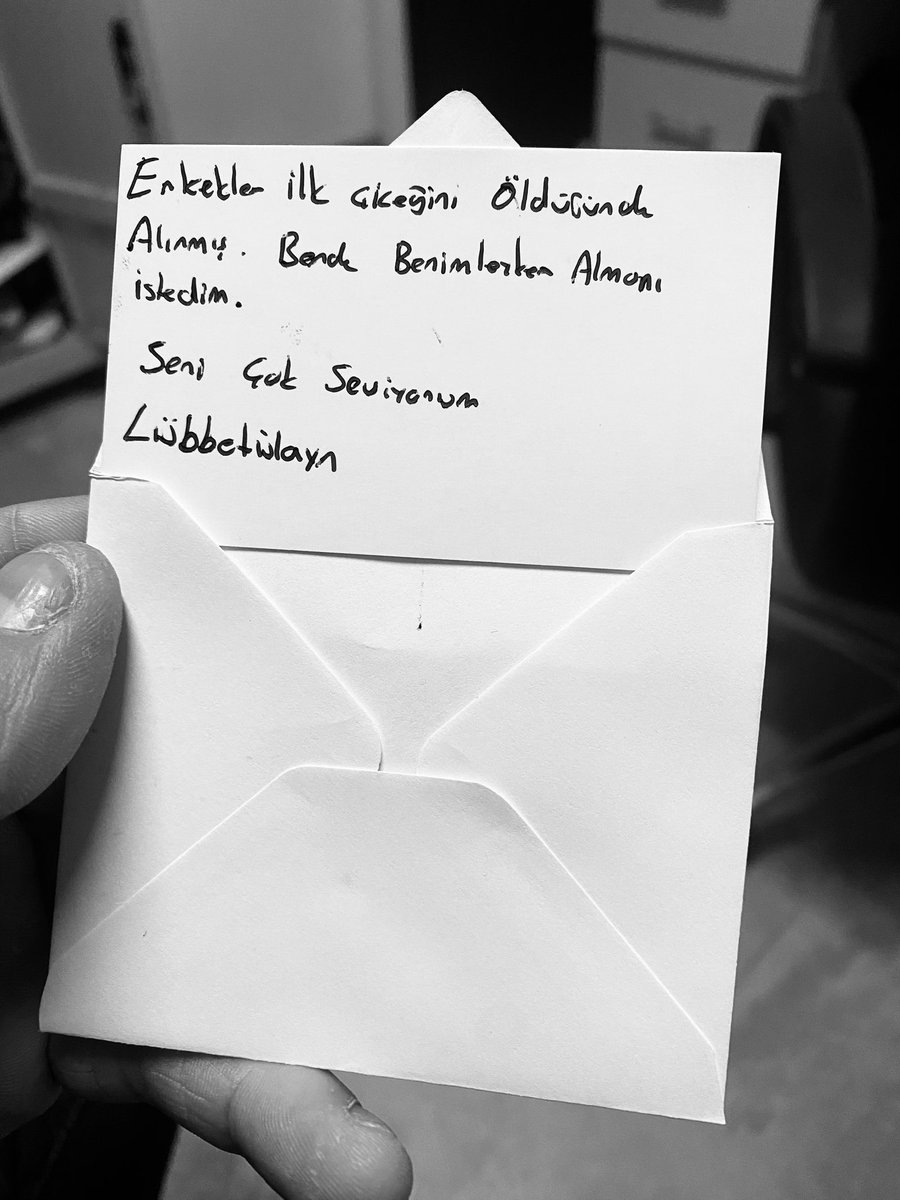 Erkekler ilk çiçeğini Öldüğünde
Alırmış. Bende Benimleyken Almanı
istedim.
Seni Çok Seviyorum
Lübbetülayn